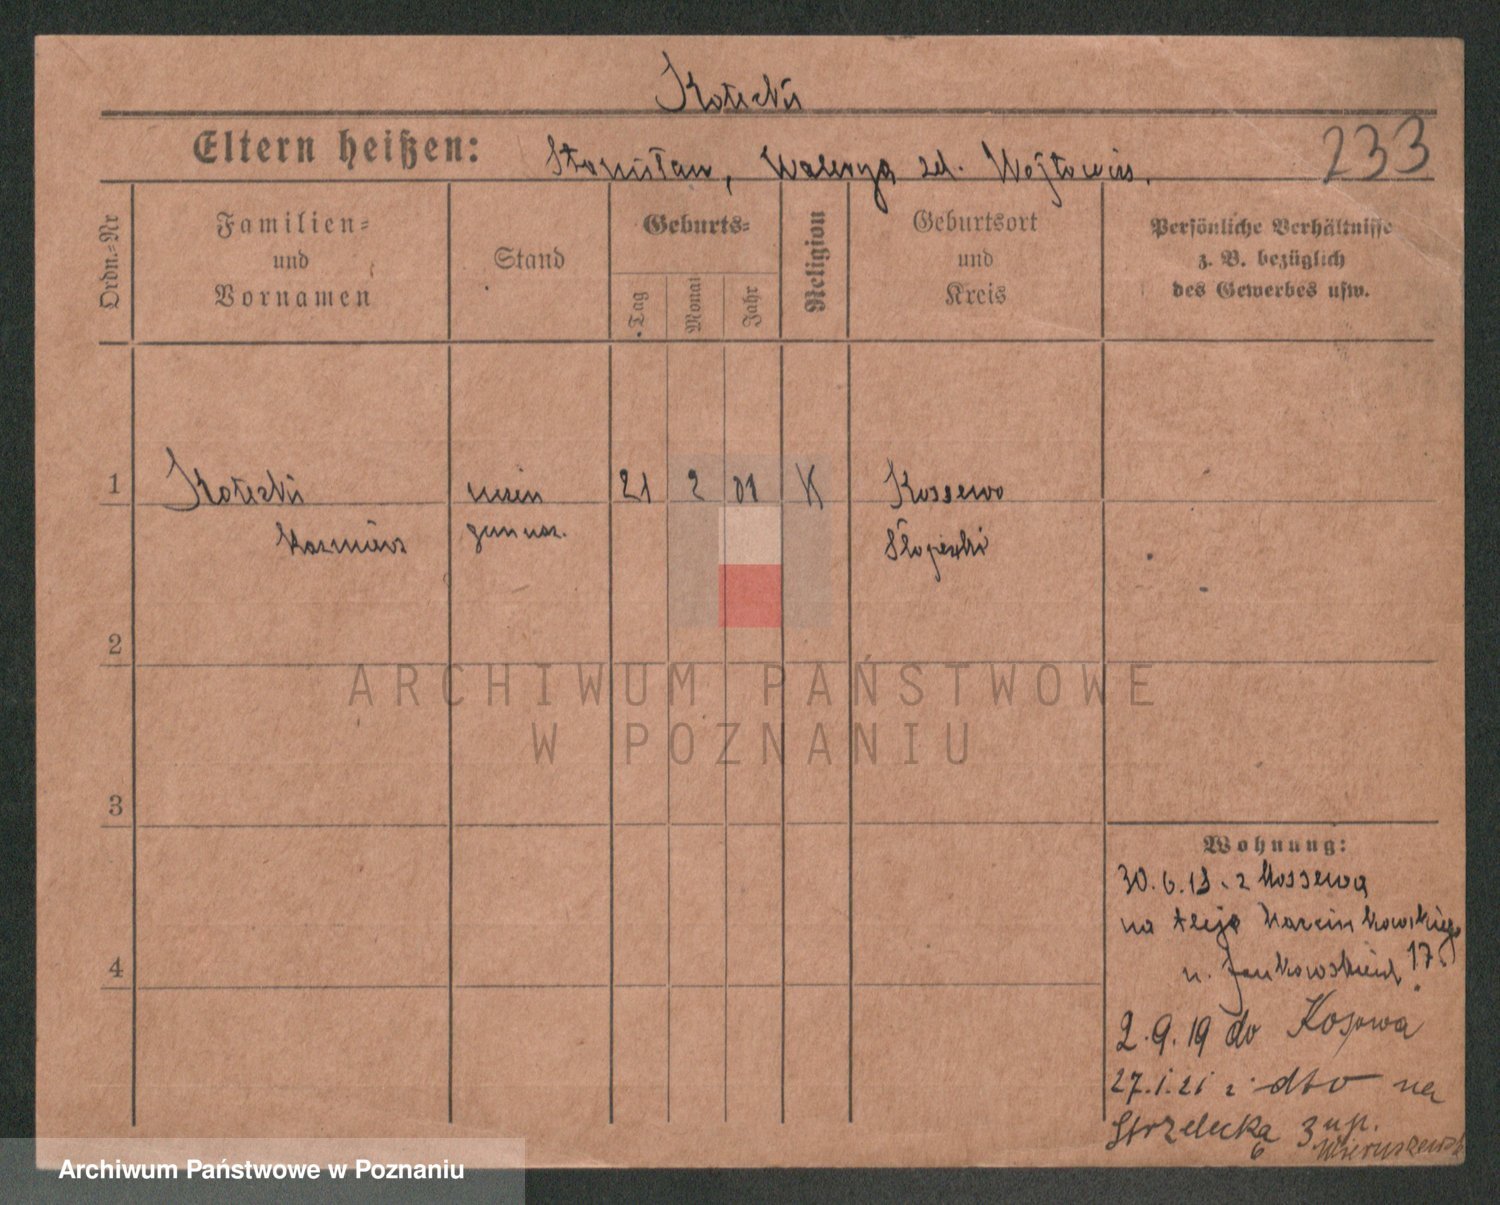 Kotecki
Eltern heißen: Stanisław, Walerya zd. Wojtowicz.
233
Ordn.-Nr
Familien-
und
Vornamen
Stand
Geburts-
Tag
Monat
Jahr
Religion
Geburtsort
und
Kreis
Persönliche Verhältnisse
z. B. bezüglich
des Gewerbes usw.
1 Kotecki uczeń 21 2 01 K Kossewo
Kazmierz
2
3
4
Wohnung:
30.6.13. z Kossewa
na Aleje Marcinkowskiego
u. Jankowskich 17.
2.9.19 do Kosowa
27.1.21 z dto na
Strzelecka
ARCHIWUM PAŃSTWOWE
W POZNANIU
Archiwum Państwowe w Poznaniu